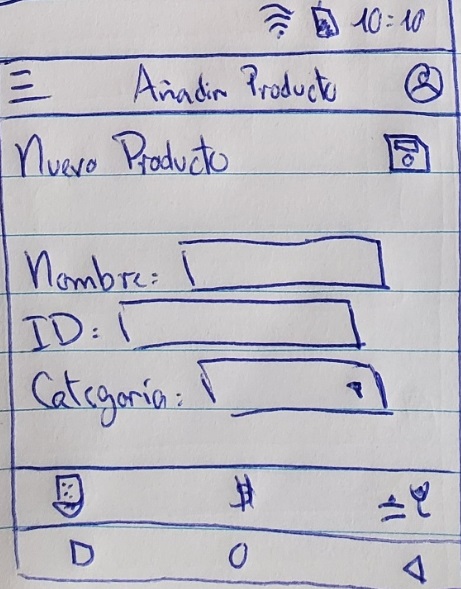 10:10
Añadir Producto
Nuevo Producto
Nombre:
ID:
Categoría:
$